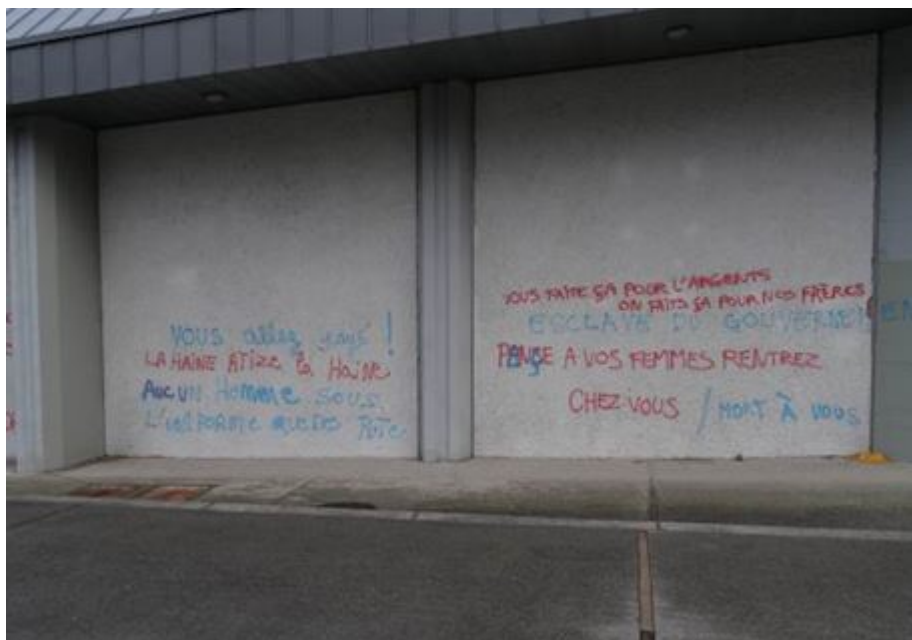 VOUS allez 
LA HAINE ATIZE la HaiNe
AUCUN HOMME SOUS
L'UNIFORME QUE DES PUTE
VOUS FAITE ÇA POUR L'ARGENTS
ON FAITS ÇA POUR NOS FRÈRES
ESCLAVE DU GOUVERNEMEN
PENSE A VOS FEMMES RENTREZ
CHEZ VOUS / MORT À VOUS